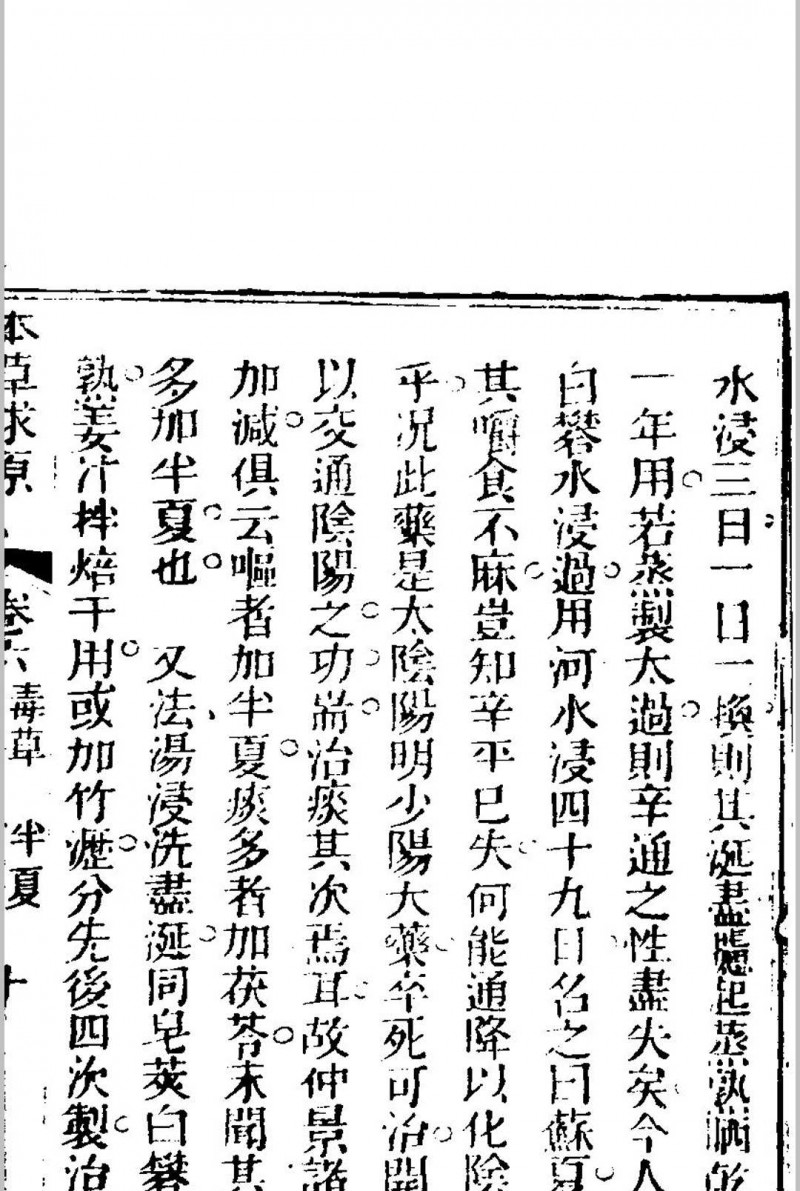 水浸三日一日一換則其涎盡聽起蒸熟晒乾
一年用若蒸製太過則辛通之性盡失矣今人
白礬水浸過用河水浸四十九日名之曰蘇夏
其嚼食不麻豈知辛平已失何能通降以化陰
乎況此藥是太陰陽明少陽大藥卒死可治開
以交通陰陽之功耑治痰其次焉耳故仲景諸
加減俱云嘔者加半夏痰多者加茯苓未聞其
多加半夏也 又法湯浸洗盡涎同皂莢白礬
熟姜汁拌焙干用或加竹瀝分先後四次製治
本草求原 卷六 毒草 半夏 十